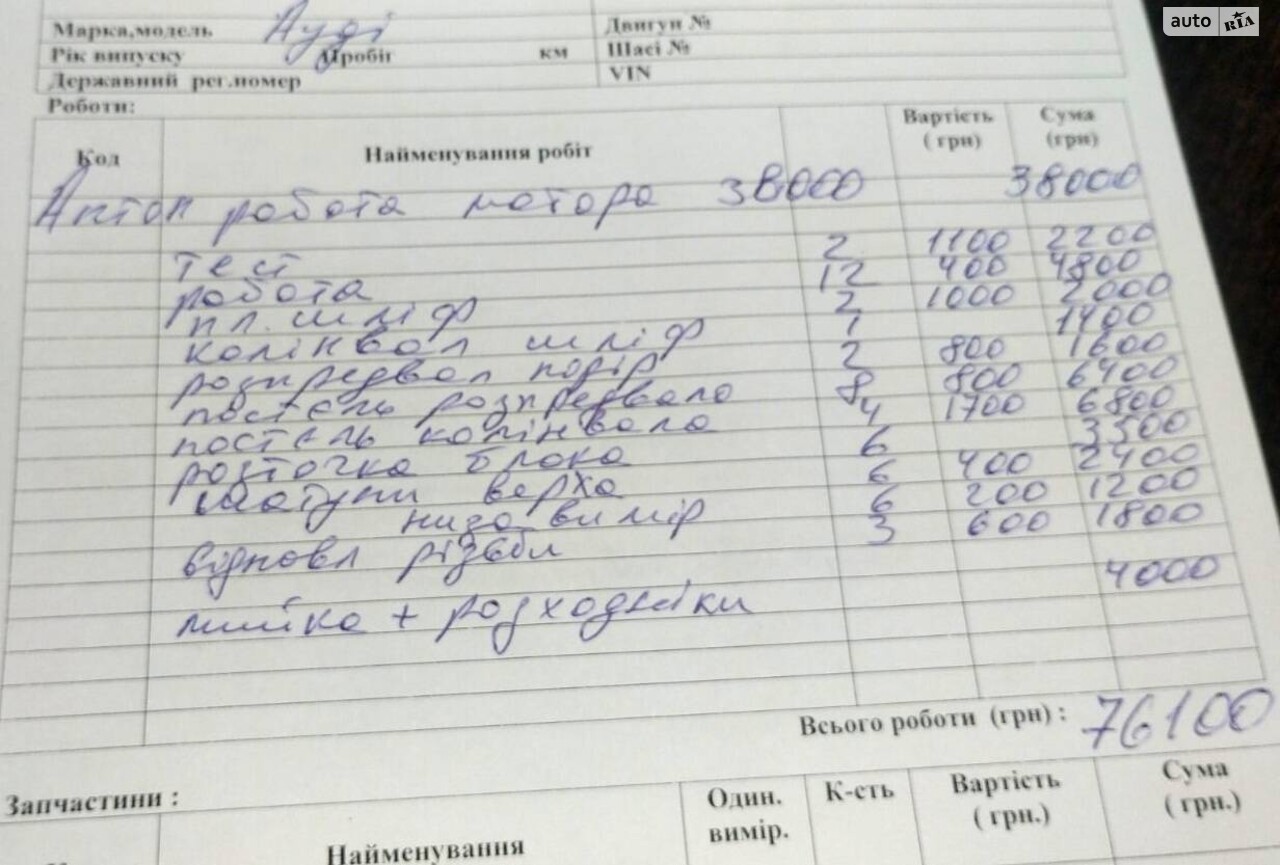 auto RIA
Марка,модель Ауді Двигун №
Рік випуску Пробіг км Шасі №
Державний рег.номер VIN
Роботи:
Код Найменування робіт Вартість (грн) Сума (грн)
Антон робота мотора 38000 38000
тест 2 1100 2200
робота 12 400 4800
пл. шліф 2 1000 2000
колінвал шліф 1 1400
розпредвал подір 2 800 1600
постєль розпредвала 8 800 6400
постєль колінвала 4 1700 6800
розточка блока 6 3500
шатуни верха 6 400 2400
низа вимір 6 200 1200
відновл різьби 3 600 1800
мийка + розходніки 4000
Всього роботи (грн) : 76100
Запчастини :
Найменування Один. вимір. К-сть Вартість ( грн.) Сума ( грн.)